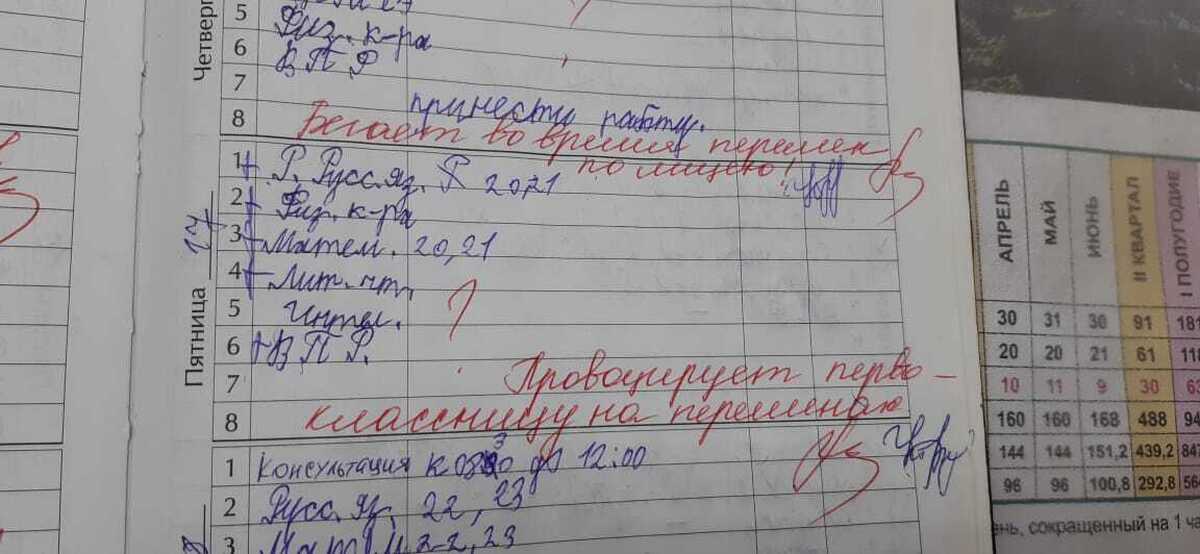 Четверг
5 Физ. к-ра
6 В П Р
7
8 принести работу.
Бегает во время перемен
по лицею!
Пятница 14
1 Р. Русс. яз. Р 20,21
2 Физ. к-ра
3 Матем. 20,21
4 Лит. чт.
5 Интел. ?
6 В П Р.
7 Провоцирует перво-
8 классницу на переменах
1 Консультация к 08:30 до 12:00
2 Русс. яз. 22, 23
3 Мат
АПРЕЛЬ МАЙ ИЮНЬ II КВАРТАЛ I ПОЛУГОДИЕ
30 31 30 91 181
20 20 21 61 118
10 11 9 30 63
160 160 168 488 94
144 144 151,2 439,2 847
96 96 100,8 292,8 564
ень, сокращенный на 1 ча